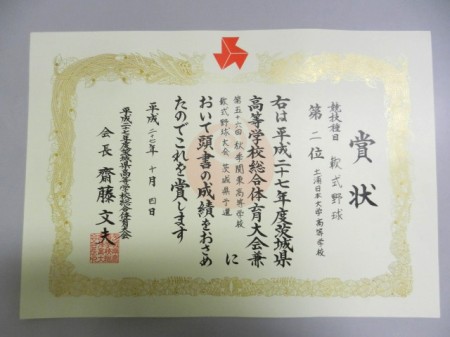 賞状
競技種目 軟式野球
第二位 土浦日本大学高等学校
右は平成二十七年度茨城県
高等学校総合体育大会兼
第五十六回 秋季関東高等学校
軟式野球大会 茨城県予選
に
おいて頭書の成績をおさめ
たのでこれを賞します
平成二十七年十月四日
平成二十七年度茨城県高等学校総合体育大会
会長 齋藤文夫